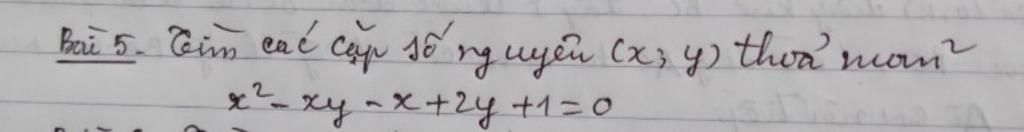 Bài 5. Tìm các cặp số nguyên (x; y) thoả mãn
x² - xy - x + 2y + 1 = 0